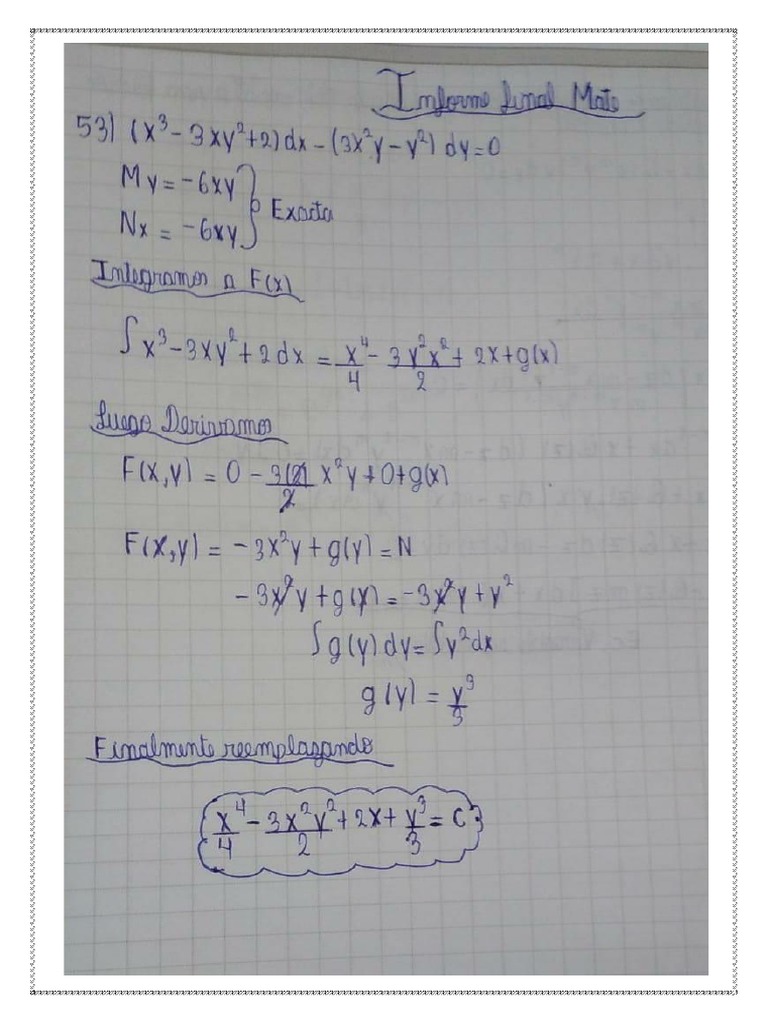 Informe final Mate
53) (x³ - 3xy² + 2) dx - (3x²y - y²) dy = 0
My = -6xy
Nx = -6xy } Exacta
Integramos a F(x)
∫ x³ - 3xy² + 2 dx = x⁴/4 - 3y²x²/2 + 2x + g(x)
Luego Derivamos
F(x,y) = 0 - 3(2)/2 x²y + 0 + g(x)
F(x,y) = -3x²y + g(y) = N
-3x²y + g(y) = -3x²y + y²
∫ g(y) dy = ∫ y² dx
g(y) = y³/3
Finalmente reemplazando
x⁴/4 - 3x²y²/2 + 2x + y³/3 = C